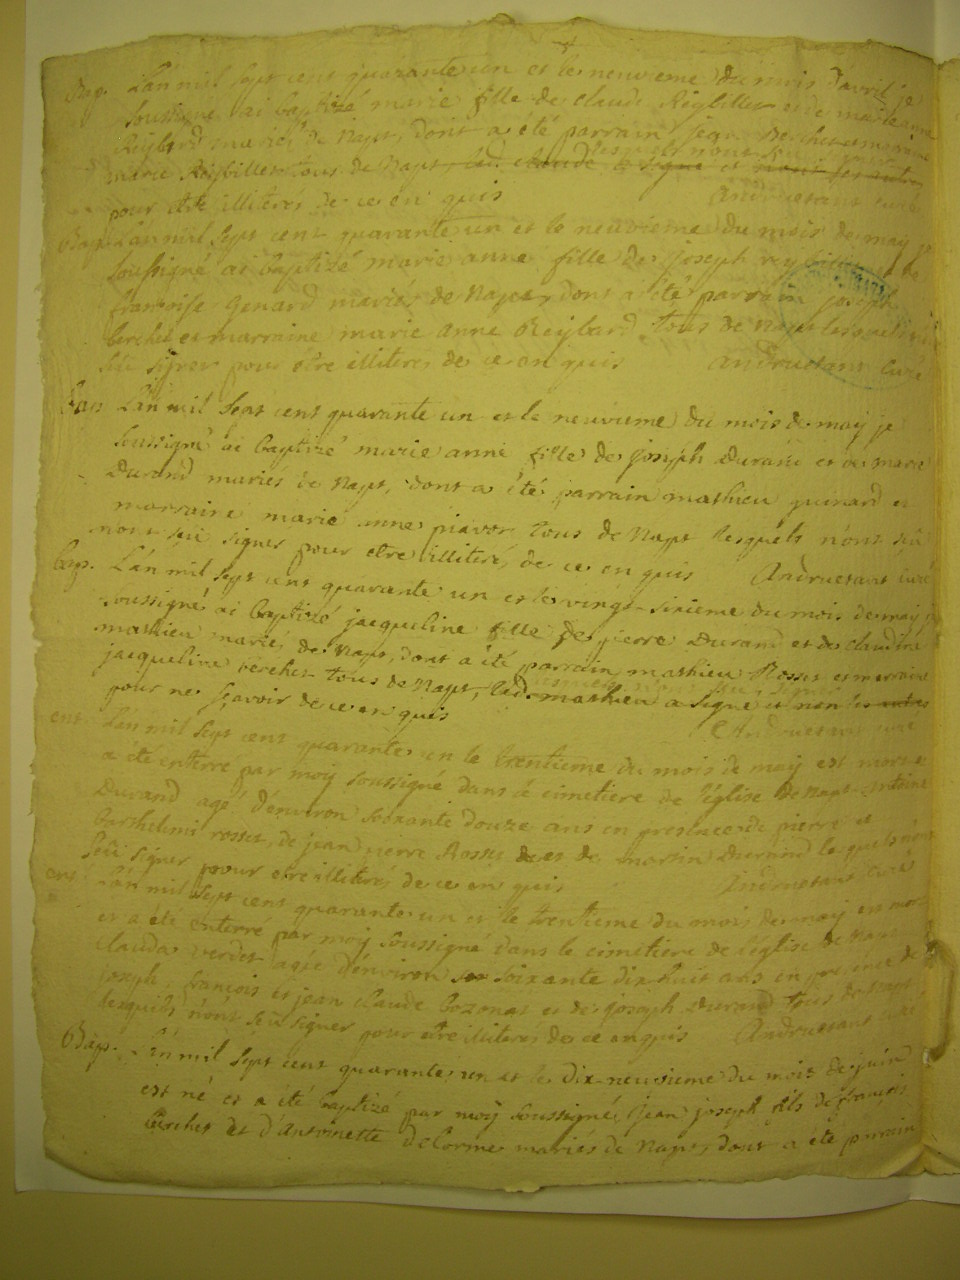 Bap. L'an mil sept cent quarante un et le neuvieme du mois d'avril je
soussigné ai baptizé marie fille de claude Reybillet et de marie anne
Reybard mariés de Napt, dont a été parrain jean Berchet et marraine
lesquels n'ont sçu signer
marie Reybillet tous de Napt, led. claude a signé et non les autres
pour etre illiterés de ce en quis Andruetant curé
Bap. L'an mil sept cent quarante un et le neuvieme du mois de may je
soussigné ai baptizé marie anne fille de joseph et de
françoise Genard mariés de Napt, dont a été parrain joseph
berchet et marraine marie anne Reybard tous de Napt lesquels n'ont
sçu signer pour etre illiterés de ce en quis Andruetant curé
Bap. L'an mil sept cent quarante un et le neuvieme du mois de may je
soussigné ai baptizé marie anne fille de joseph Durand et de marie
Durand mariés de Napt, dont a été parrain mathieu guinard et
marraine marie anne tous de Napt lesquels n'ont sçu
signer pour etre illiterés de ce en quis Andruetant curé
bap. L'an mil sept cent quarante un et le vingt-sixieme du mois de may je
soussigné ai baptizé jacqueline fille de pierre Durand et de claudine
mathieu mariés de Napt, dont a été parrain mathieu Rosset et marraine
lesquels n'ont sçu signer
jacqueline berchet tous de Napt, led. mathieu a signé et non les autres
pour ne sçavoir de ce en quis Andruetant curé
ent. L'an mil sept cent quarante un le trentieme du mois de may est mort et
a été enterré par moy soussigné dans le cimetiere de l'église de Napt Antoine
Durand agé d'environ soixante douze ans en presence de pierre et
barthelemi rosset, de jean pierre Rosset et de martin Durand lesquels n'ont
sçu signer pour etre illiterés de ce en quis Andruetant curé
ent. L'an mil sept cent quarante un et le trentieme du mois de may est mor
et a été enterré par moy soussigné dans le cimetiere de l'église de Napt
clauda verdet agée d'environ soixante dix huit ans en presence de
joseph, françois et jean claude bozonat et de joseph Durand tous de Napt
lesquels n'ont sçu signer pour etre illiterés de ce en quis Andruetant curé
Bap. L'an mil sept cent quarante un et le dix-neuvieme du mois de juin
est né et a été baptizé par moy soussigné, jean joseph fils de françois
berchet et d'Antoinette delorme mariés de Napt, dont a été parrain